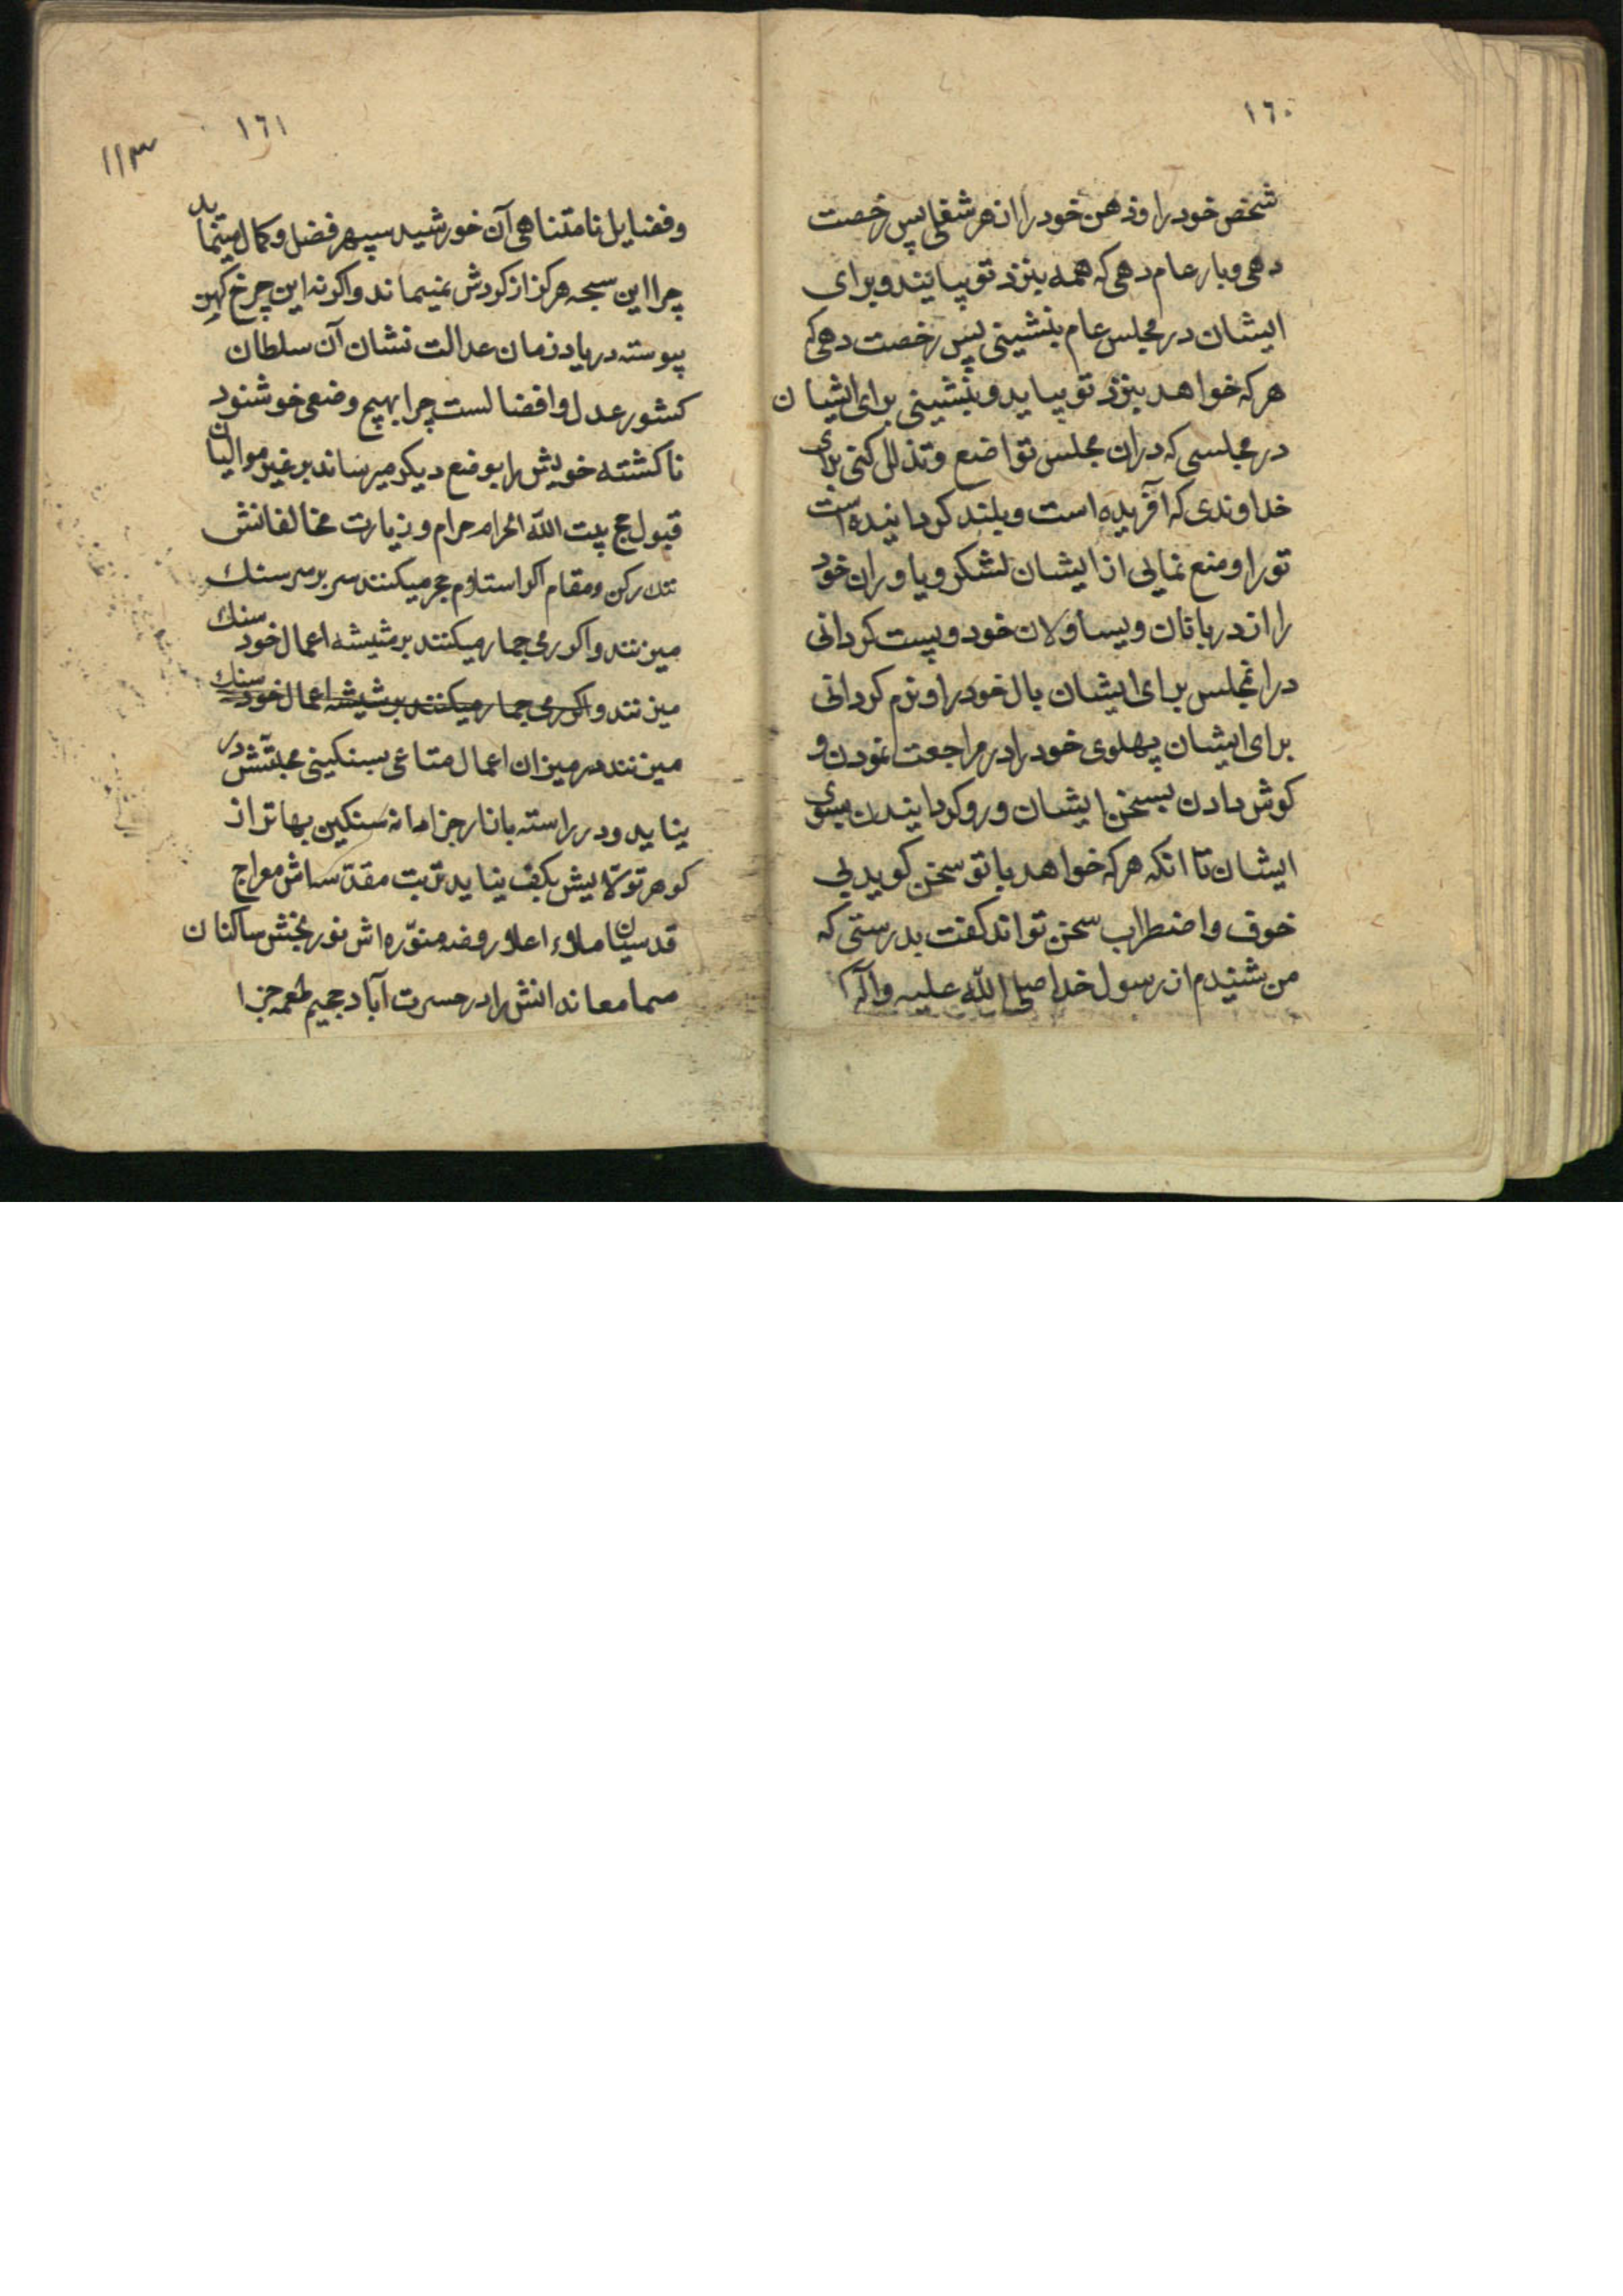 ١٦٠
شخص خود را و ذهن خود را از هر شغلی پس رخصت
دهی و بار عام دهی که همه بنزد تو بیایند و برای
ایشان در مجلس عام بنشینی پس رخصت دهی که
هر که خواهد بنزد تو بیاید و بنشینی برای ایشان
در مجلسی که دران مجلس تواضع و تذلل کنی برای
خداوندی که آفریده است و بلند کردانیده است
تو را و منع نمایی از ایشان لشکر و یاوران خود
را از دربانان و یساولان خود و پست کردانی
در انمجلس برای ایشان بال خود را و نرم کردانی
برای ایشان پهلوی خود را در مراجعت نمودن و
کوش دادن بسخن ایشان و رو کردانیدن بسوی
ایشان تا انکه هر که خواهد با تو سخن کوید بی
خوف و اضطراب سخن تواند کفت بدرستی که
من شنیدم از رسول خدا صلی الله علیه و آله
١٦١
١١٣
و فضایل نامتناهی آن خورشید سپهر فضل و کمال مینماید
چرا این سبحه هرکز از کردش نمیماند و اکرنه این چرخ کهن
پیوسته در یاد زمان عدالت نشان آن سلطان
کشور عدل و افضالست چرا بهیچ وضعی خوشنود
ناکشته خویش را بوضع دیکر میرساند بر غیر موالیان
قبول حج بیت الله الحرام حرام و زیارت مخالفانش
رکن و مقام اکر استلام حجر میکنند سر بر سر سنك
میزنند و اکر رمی جمار میکنند بر شیشه اعمال خود سنك
میزنند و اکر رمی جمار میکنند بر شیشه اعمال خود سنك
میزنند در میزان اعمال متاعی بسنکینی محبتش در
نیاید و در راسته بازار جزا دانه سنکین بهاتر از
کوهر تولایش بکف نیاید تربت مقدساش معراج
قدسیان ملاء اعلا و روضه منوره اش نور بخش ساکنان
سما معاندانش را در حسرت آباد جحیم طعمه جزا